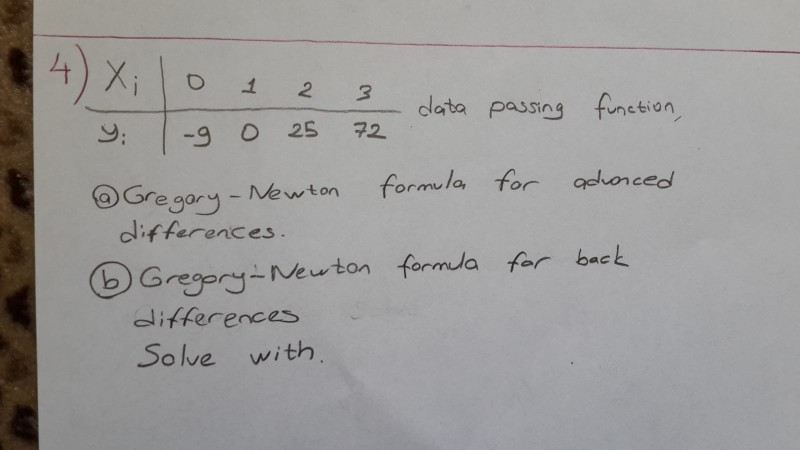 4) Xi | 0 1 2 3
yi | -9 0 25 72 data passing function,
(a) Gregory-Newton formula for advanced
differences.
(b) Gregory-Newton formula for back
differences
Solve with.